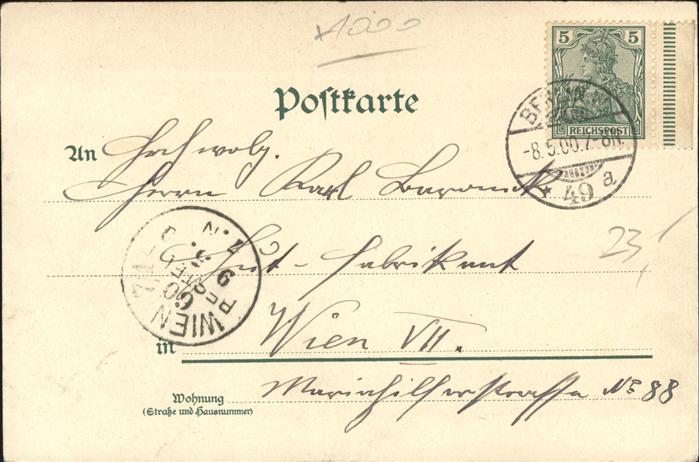 1000
5 5
REICHSPOST
Postkarte
BERLIN
-8.5.00.7-8N.
* 49 a
An Hochwolg.
Herrn Karl
Hut-Fabrikant
23,
WIEN
BESTELLT
in Wien VII.
Wohnung Mariahilferstrasse No 88
(Straße und Hausnummer)